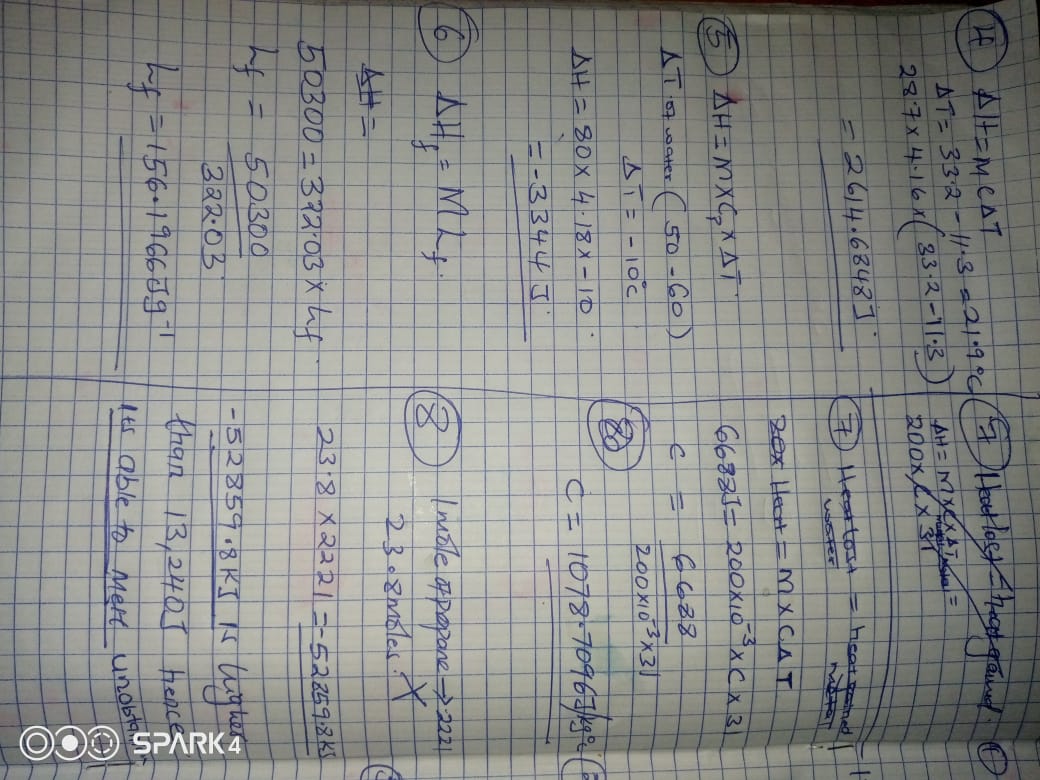 4 ΔH = MCΔT
ΔT = 33.2 - 11.3 = 21.9°C
28.7 × 4.16 × (33.2 - 11.3)
= 2614.6848J
5 ΔH = M × C₂ × ΔT
ΔT of water (50 - 60)
ΔT = -10°C
ΔH = 80 × 4.18 × -10
= -3344 J
6 ΔHf = M hf
ΔH =
50300 = 322.03 × hf
hf = 50300
322.03
hf = 156.1966Jg⁻¹
7 Heat lost = heat gained
ΔH = M × C × ΔT
200 × C × 31
7 Heat lost = heat
water
Heat = M × C Δ T
6682J = 200×10⁻³ × C × 31
C = 6688
200×10⁻³×31
8
C = 1078.7096J/kg°C
8 1mole of propane → 2221
23.8moles X
23.8 × 2221 = -52859.8KJ
-52859.8KJ is higher
than 13,240J hence
Its able to Melt
SPARK 4